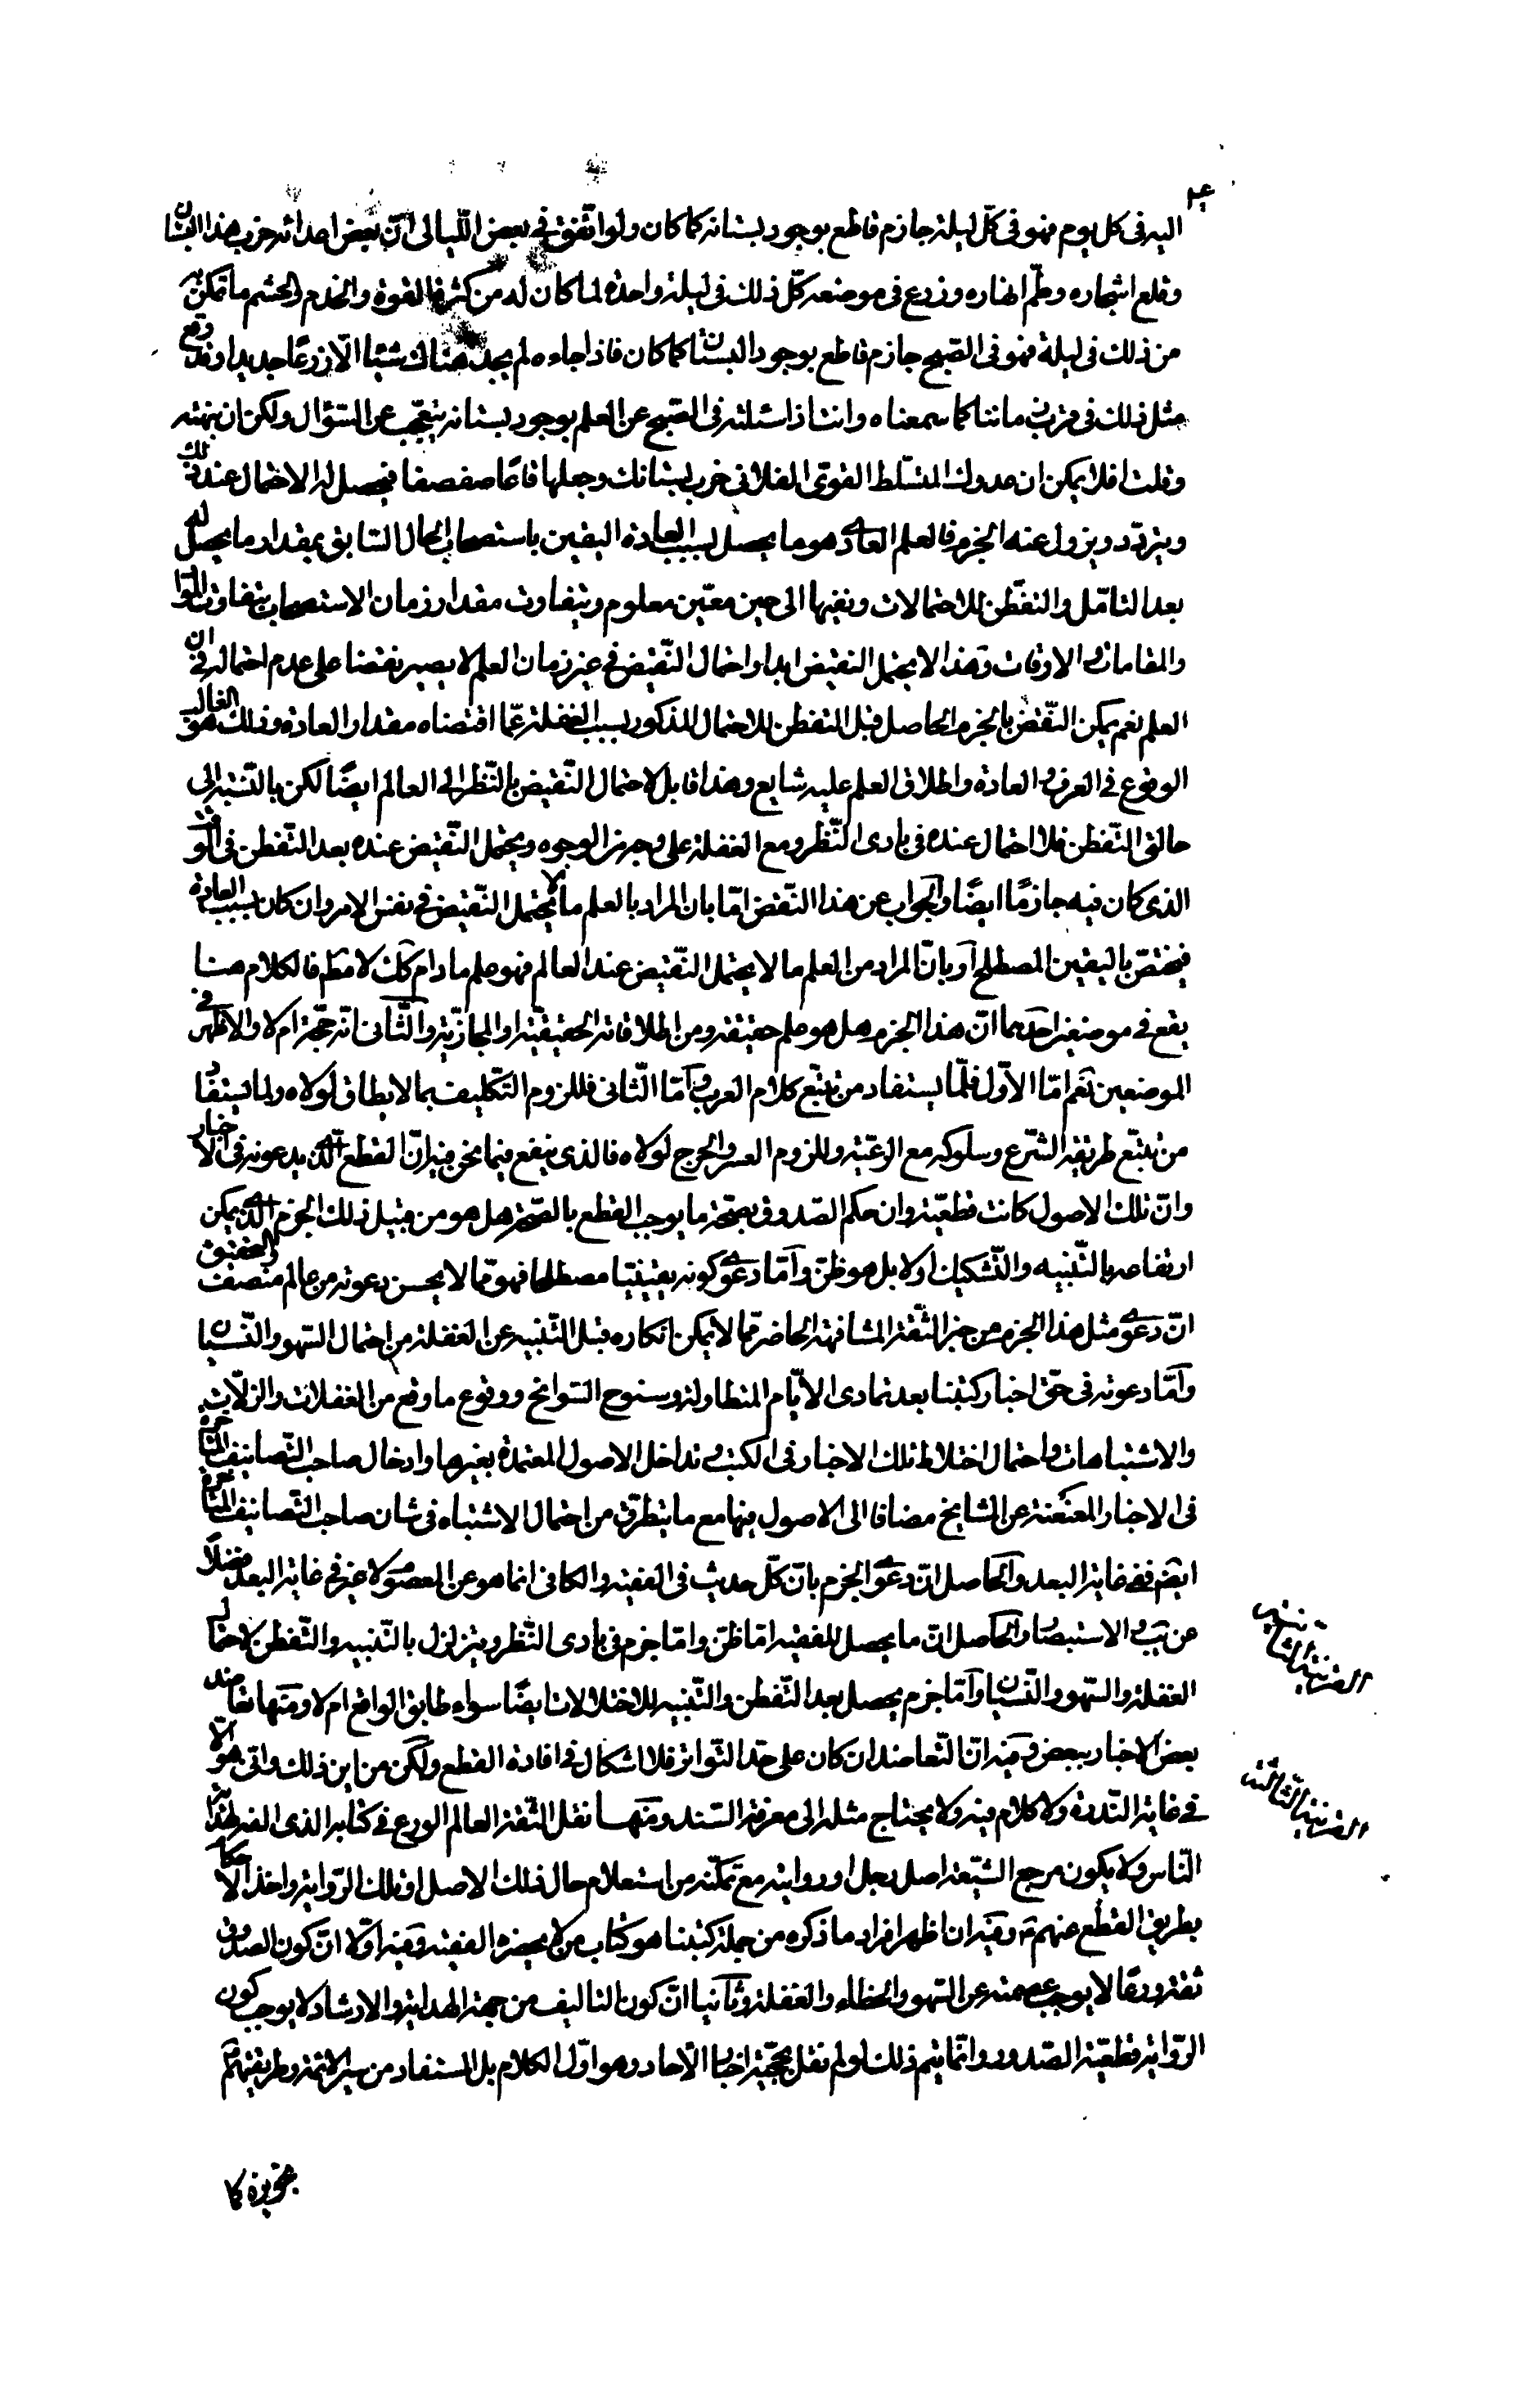 اليه فى كل يوم فهو فى كلّ ليلة جازم قاطع بوجود بستانه كما كان ولو اتّفق فى بعض اللّيالى انّ بعض اعدائه خرب هذا البستان
وقلع اشجاره وطمّ انهاره وزرع فى موضعه كلّ ذلك فى ليلة واحدة لما كان له من كثرة القوة والخدم والحشم ما تمكن به
من ذلك فى ليلة فهو فى الصّبح جازم قاطع بوجود البستان كما كان فاذا جاءه لم يجد هناك شيئا الّا زرعًا جديدا وقد وقع
مثل ذلك فى قرب زماننا كما سمعناه وانت اذا سئلته فى الصّبح عن العلم بوجود بستانه يتعجّب عن السّؤال ولكن ان نبهته
وقلت افلا يمكن ان عدوك المتسّلط القوىّ الفلانى خرب بستانك وجعلها قاعًا صفصفا فيحصل له الاحتمال عند ذلك
ويتردّد ويزول عنه الجزم فالعلم العادى هو ما يحصل بسبب العادة اليقين باستصحاب الحال السّابق بمقدار ما يحصل له
بعد التامّل والتفطّن للاحتمالات ونفيها الى حين معيّن معلوم ويتفاوت مقدار زمان الاستصحاب بتفاوت الموا
والمقامات والاوقات وهذا لا يحتمل النقيض ابدا واحتمال النّقيض فى غير زمان العلم لا يصير نقضا على عدم احتماله فى ان
العلم نعم يمكن النّقض بالجزم الحاصل قبل التفطن للاحتمال المذكور بسبب الغفلة عمّا اقتضاه مقدار العادة وذلك هو الغالب
الوقوع فى العرف والعادة واطلاق العلم عليه شايع وهذا قابل لاحتمال النّقيض بالنّظر الى العالم ايضًا لكن بالنّسبة الى
حالتى التّفطن فلا احتمال عنده فى بادى النّظر ومع الغفلة على وجه من الوجوه ويحتمل النّقيض عنده بعد التّفطن فى الوقت
الذى كان فيه جازمًا ايضًا والجواب عن هذا النّقض امّا بان المراد بالعلم ما لا يحتمل النّقيض فى نفس الامر وان كان بسبب العادة
فيختصّ باليقين المصطلح او بانّ المراد من العلم ما لا يحتمل النّقيض عند العالم فهو علم ما دام كك لا مطم فالكلام هنا
يقع فى موضعين احدهما انّ هذا الجزم هل هو علم حقيقة ومن اطلاقاته الحقيقيّة او المجازيّة والثّانى انّه حجّة ام لا والاظهر فى
الموضعين نعم امّا الاوّل فلمّا يستفاد من تتبّع كلام العرب وامّا الثّانى فللزوم التّكليف بما لا يطاق لولاه ولما يستفاد
من تتبّع طريقة الشّرع وسلوكه مع الرّعيّة وللزوم العسر والحرج لولاه فالذى ينفع فيما نحن فيه انّ القطع الّذى يدعونه فى الاخبار
وانّ تلك الاصول كانت قطعيّة وان حكم الصّدوق بصحّة ما يوجب القطع بالصّحة هل هو من قبيل ذلك الجزم الّذى يمكن
ارتفاعه بالتّنبيه والتّشكيك اولا بل هو ظنّ وامّا دعوى كونه يقينيّا مصطلحا فهو ممّا لا يحسن دعوته من عالم منصف والتحقيق
انّ دعوى مثل هذا الجزم من خبر الثّقة المشافهة الحاضر ممّا لا يمكن انكاره قبل التّنبيه عن الغفلة من احتمال السّهو والنّسيان
وامّا دعوته فى حقّ اخبار كتبنا بعد تمادى الايّام المتطاولة وسنوح السّوانح ووقوع ما وقع من الغفلات والزلّات
والاشتباهات واحتمال اختلاط تلك الاخبار فى الكتب وتداخل الاصول المعتمدة بغيرها وادخال صاحب التّصانيف المتاخرة
فى الاخبار المعنعنة عن المشايخ مضافا الى الاصول فيها مع ما يتطرّق من احتمال الاشتباه فى شان صاحب التّصانيف المتاخرة
ايضم ففى غاية البعد والحاصل انّ دعوى الجزم بانّ كلّ حديث فى الفقيه والكافى انما هو عن المعصوم لا غير فى غاية البعد فضلًا
عن يب والاستبصار والحاصل انّ ما يحصل للفقيه امّا ظنّ وامّا جزم فى بادى النّظر ويتزلزل بالتّنبيه والتّفطن لاحتمال
الغفلة والسّهو والنّسيان وامّا جزم يحصل بعد التّفطن والتّنبيه للاختلالات ايضًا سواء طابق الواقع ام لا ومنها تعاضد
بعض الاخبار ببعض وفيه انّ التّعاضد ان كان على حدّ التّواتر فلا اشكال فى افادة القطع ولكن من اين ذلك وانّى هو والّا
فى غاية النّدرة ولا كلام فيه ولا يحتاج مثله الى معرفة السّند ومنها نقل الثّقة العالم الورع فى كتابه الذى الفه لهداية
النّاس ولا يكون مرجع الشّيعة اصل رجل او روايته مع تمكّنه من استعلام حال ذلك الاصل او تلك الرّواية واخذ الاحكام
بطريق القطع عنهم ع وفيه ان اظهر افراد ما ذكره من جملة كتبنا هو كتاب من لا يحضره الفقيه وفيه اوّلا انّ كون الصدوق
ثقة ورعًا لا يوجب عصمته عن السّهو والخطاء والغفلة وثانيا انّ كون التاليف من جهة الهداية والارشاد لا يوجب كون
الرّواية قطعيّة الصّدور وانّما يتم ذلك لو لم نقل بحجيّة اخبار الآحاد وهو اوّل الكلام بل المستفاد من سير الائمة وطريقتهم
تجويزه كا
القرينة الثانية
القرينة الثّالثة